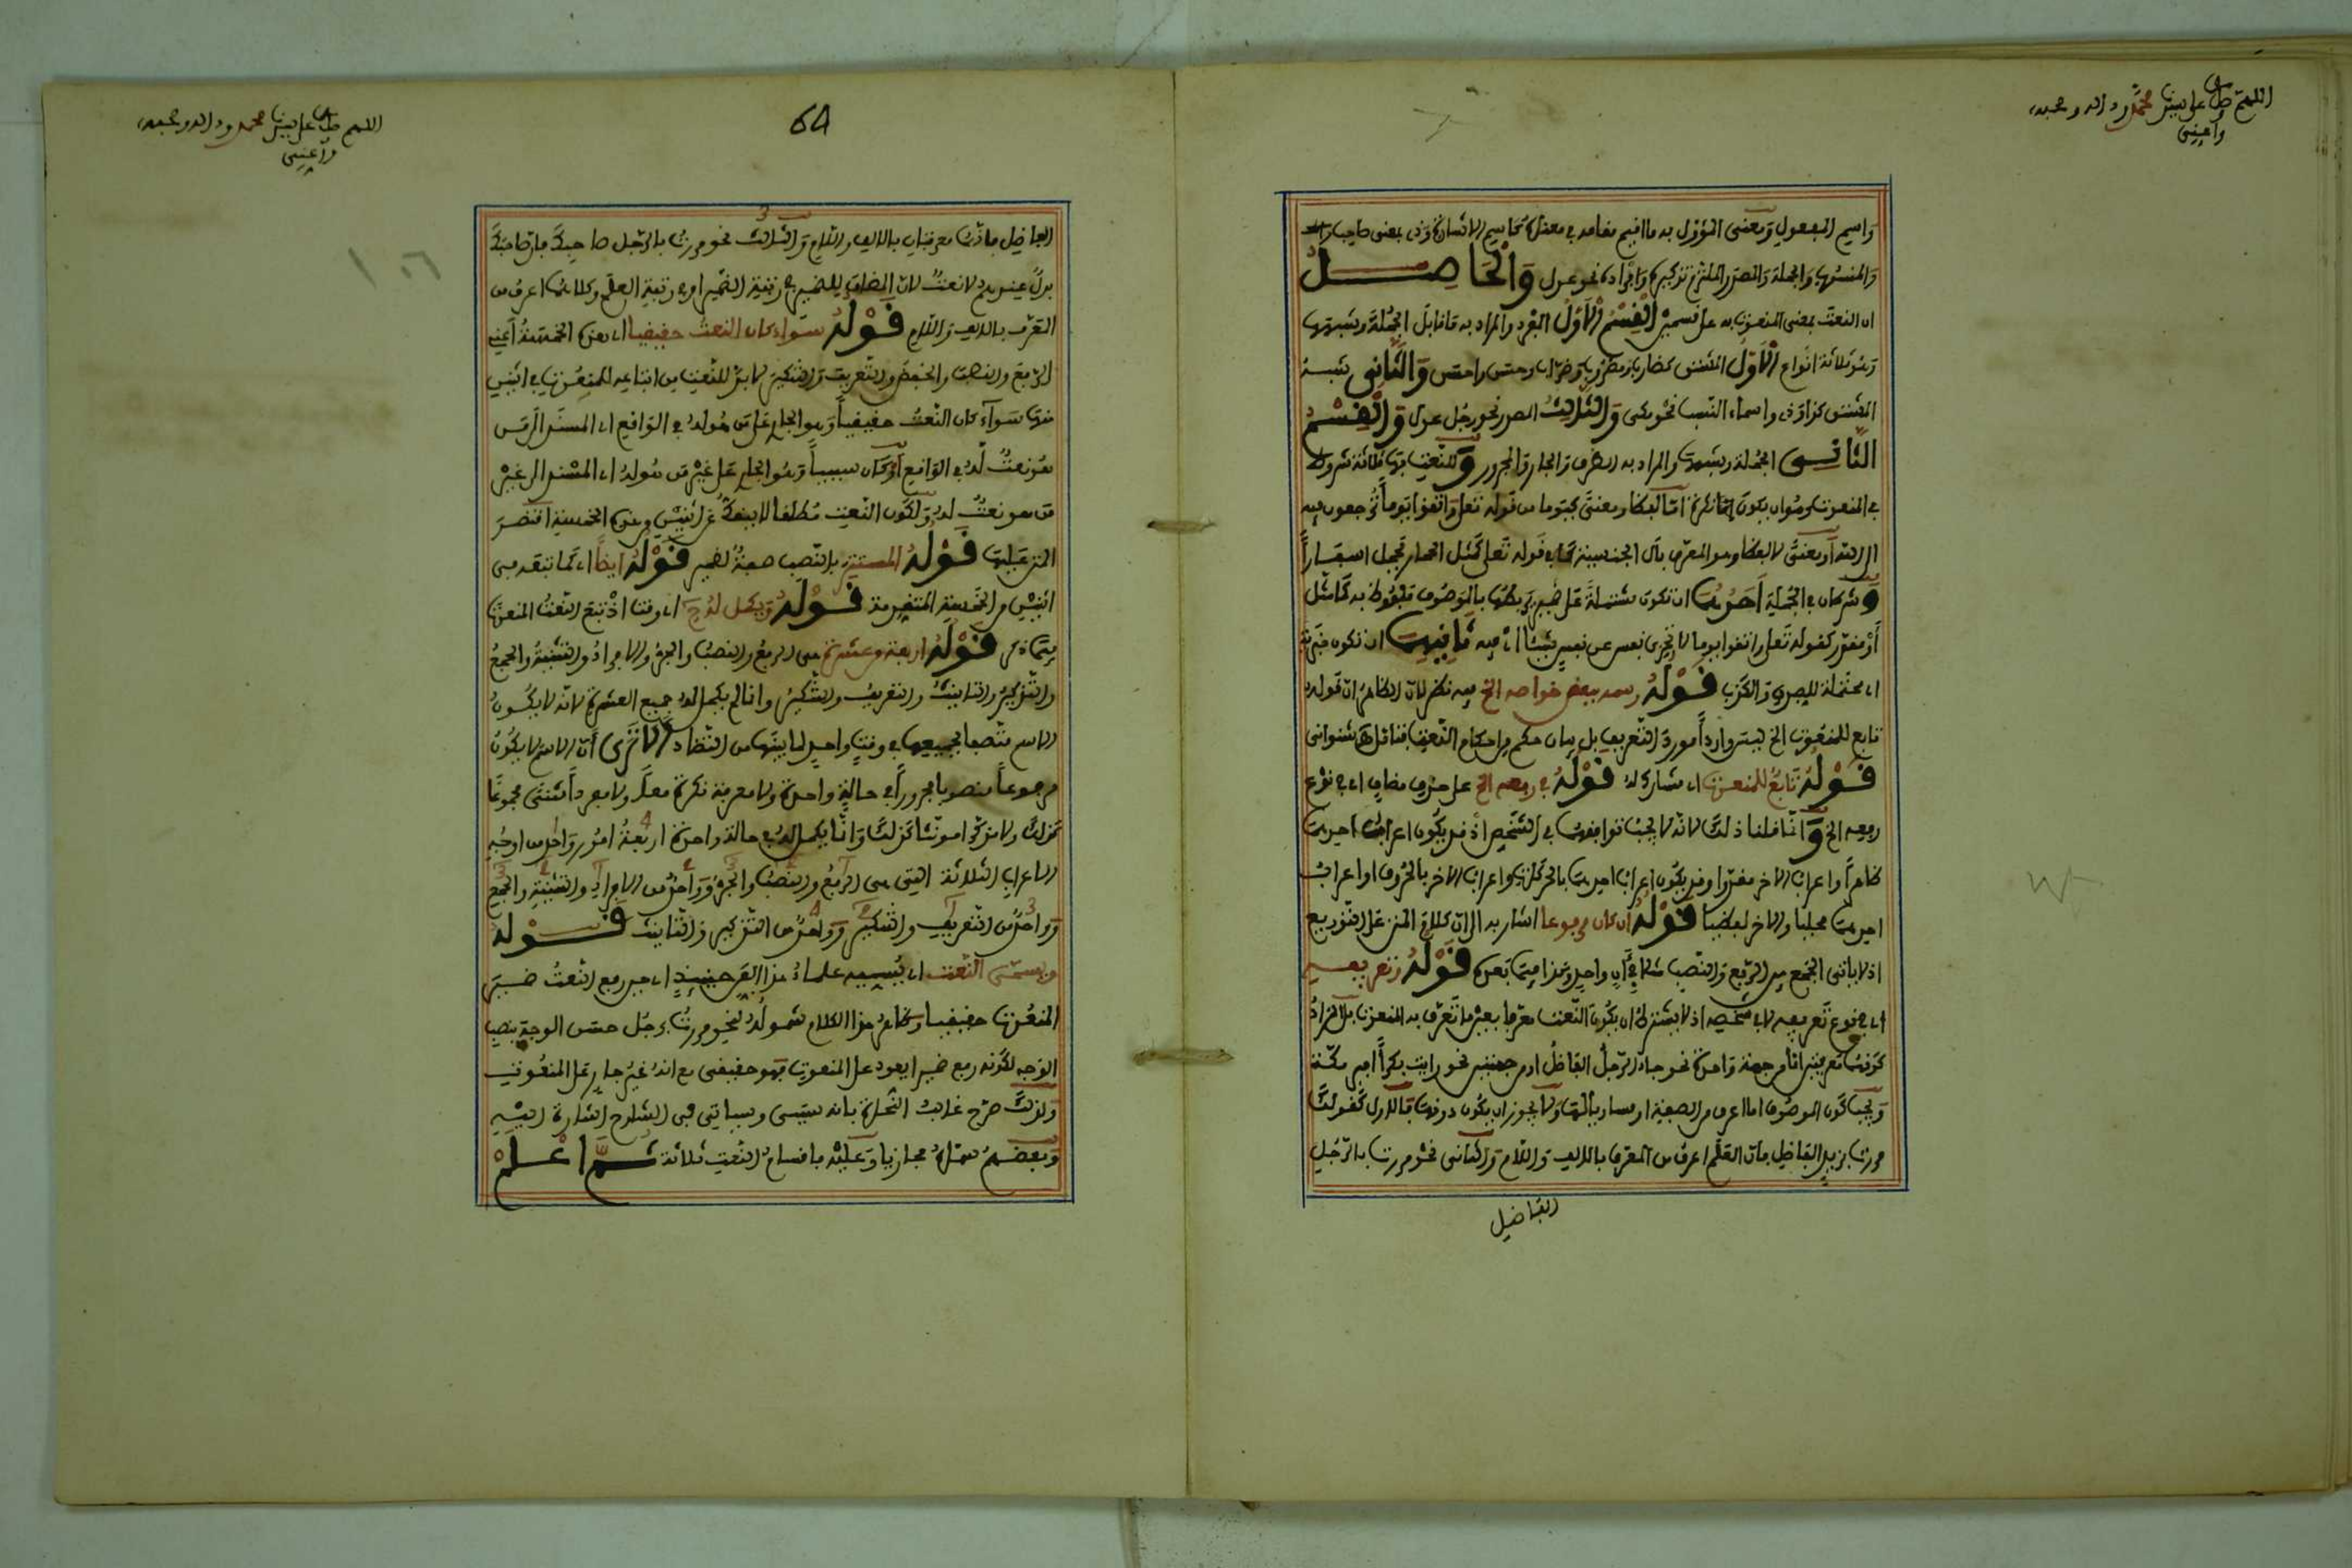 اللهم صل على نبينا محمد وءاله وصحبه
وأعني
واسم المفعول ومعنى المؤول به ما اقيم مقامه في معناه كاسم الاشارة وذي بمعنى صاحب
والمنسوب والجملة والمصدر الملتزم تذكيره وافراده نحو عدل والحاصل
ان النعت بمعنى المنعوت به على قسمين القسم الاول المفرد والمراد به ما قابل الجملة وشبهها
وهو ثلاثة انواع الاول المشتق كضارب ومضروب وضراب وحسن واحسن والثاني شبه
المشتق كذا وذي واسماء النسب نحو مكي والثالث المصدر نحو رجل عدل والقسم
الثاني الجملة وشبهها والمراد به الظرف والجار والمجرور وللنعت بها ثلاثة شروط
في المنعوت وهو ان يكون نكرة اما لفظا ومعنى كيوما من قوله تعلى واتقوا يوما ترجعون فيه
الى الله أو معنى لا لفظا وهو المعرف بأل الجنسية كما في قوله تعلى كمثل الحمار يحمل اسفارا
وشرطان في الجملة احدهما ان تكون مشتملة على ضمير يربطها بالموصوف ملفوظ به كما مثل
أو مقدر كقوله تعلى واتقوا يوما لا تجزى نفس عن نفس شيئا اي فيه ثانيهما ان تكون خبرية
اي محتملة للصدق والكذب قوله رسمه ببعض خواصه الخ فيه نظر لان الظاهر ان قوله
تابع للمنعوت الخ ليس واردا مورد التعريف بل بيان حكم من احكام النعت فتأمله شنواني
قوله تابع للمنعوت اي مشارك له قوله في رفعه الخ على حذف مضاف اي في نوع
رفعه الخ وانما قلنا ذلك لانه لا يجب توافقهما في الشخص اذ قد يكون اعراب احدهما
ظاهرا واعراب الاخر مقدرا وقد يكون اعراب احدهما بالحركات واعراب الاخر بالحروف او اعراب
احدهما محليا والاخر لفظيا قوله ان كان مرفوعا اشار به الى ان كلام المتن على التوزيع
اذ لا يتأتى الجمع بين الرفع والنصب مثلا في ءان واحد وهكذا فيما بعده قوله وتعريفه
اي نوع تعريفه لا في شخصه اذ لا يشترط ان يكون النعت معرفا بعين ما تعرف به المنعوت بل المراد
كونهما معرفتين اما من جهة واحدة نحو جاء الرجل الفاضل او من جهتين نحو رايت بكرا امير مكة
ويجب كون الموصوف اما اعرف من الصفة او مساويا لها ولا يجوز ان يكون دونها فالاول كقولك
مررت بزيد الفاضل فان العلم اعرف من المعرف بالالف واللام والثاني نحو مررت بالرجل
الفاضل
64
اللهم صل على نبينا محمد وءاله وصحبه
وأعني
١٠٦
الفاضل فانهما معرفتان بالالف واللام والثالث نحو مررت بالرجل صاحبك فان صاحبك
بدل عندهم لا نعت لان المضاف للضمير في رتبة الضمير او في رتبة العلم وكلاهما اعرف من
المعرف بالالف واللام قوله سواء كان النعت حقيقيا اي هذه الخمسة أعني
الرفع والنصب والخفض والتعريف والتنكير لا بد للنعت من اتباعه للمنعوت في اثنين
منها سواء كان النعت حقيقيا وهو الجاري على من هو له في الواقع اي المسند الى من
هو نعت له في الواقع أو كان سببيا وهو الجاري على غير من هو له اي المسند الى غير
من هو نعت له ولكون النعت مطلقا لا ينفك عن اثنين من هذه الخمسة اقتصر
المتن عليها قوله المستتر بالنصب صفة لضمير قوله ايضا اي كما تبعه في
اثنين من الخمسة المتقدمة قوله ويكمل له ح اي وقت اذ تبع النعت المنعوت
فيما ذكر قوله اربعة من عشرة هي الرفع والنصب والجر والافراد والتثنية والجمع
والتذكير والتأنيث والتعريف والتنكير وانما لم يكمل له جميع العشرة لانه لا يكون
الاسم متصفا بجميعها في وقت واحد لما بينها من التضاد ألا ترى أن الاسم لا يكون
مرفوعا منصوبا مجرورا في حالة واحدة ولا معرفة نكرة معا ولا مفردا مثنى مجموعا
كذلك ولا مذكرا مونثا كذلك وانما يكمل له في حالة واحدة اربعة امور واحد من اوجه
الاعراب الثلاثة التي هي الرفع والنصب والجر وواحد من الافراد والتثنية والجمع
وواحد من التعريف والتنكير وواحد من التذكير والتانيث قوله
ويسمى النعت اي يسميه علماء هذا الفن حينئذ اي حين رفع النعت ضمير
المنعوت حقيقيا وظاهر هذا الكلام شموله لنحو مررت برجل حسن الوجه بنصب
الوجه لكونه رفع ضميرا يعود على المنعوت فهو حقيقي مع انه غير جار على المنعوت
ولذلك صرح غالب النحاة بانه سببي وسياتي في الشارح اشارة اليه
وبعضهم سماه مجازيا وعليه فاقسام النعت ثلاثة ثم اعلم